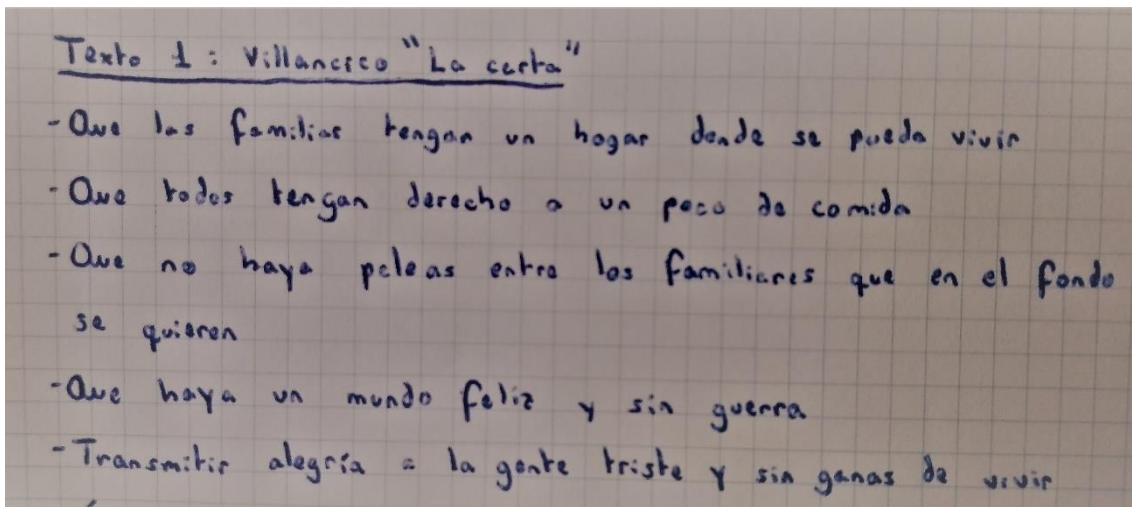 Texto 1: Villancico "La carta"
- Que las familias tengan un hogar donde se pueda vivir
- Que todos tengan derecho a un poco de comida
- Que no haya peleas entre los familiares que en el fondo
se quieren
- Que haya un mundo feliz y sin guerra
- Transmitir alegría a la gente triste y sin ganas de vivir